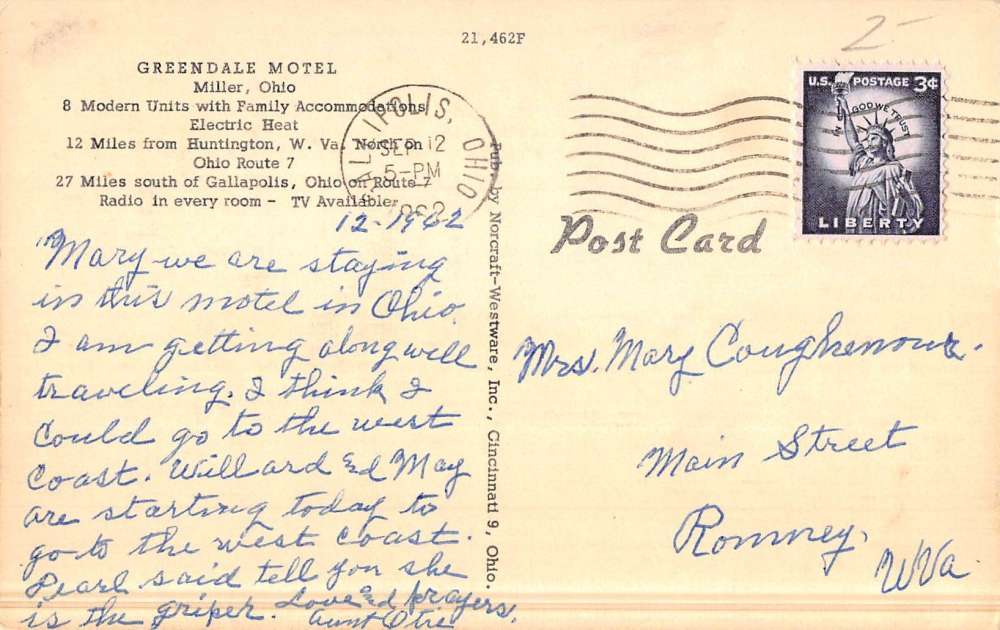 21,462F
2-
GREENDALE MOTEL
Miller, Ohio
8 Modern Units with Family Accommodations
Electric Heat
12 Miles from Huntington, W. Va. North on
Ohio Route 7
27 Miles south of Gallapolis, Ohio on Route 7
Radio in every room - TV Availabler
GALLIPOLIS, OHIO
SEP 12
5-PM
1962
U.S. POSTAGE 3¢
IN GOD WE TRUST
LIBERTY
Post Card
Pub. by Norcraft-Westware, Inc., Cincinnati 9, Ohio.
12-1962
Mary we are staying
in this motel in Ohio.
I am getting along well
traveling. I think I
could go to the west
coast. Willard and May
are starting today to
go to the west coast.
Pearl said tell you she
is the griper. Love and prayers,
aunt
Mrs. Mary Coughenour.
Main Street
Romney,
WVa